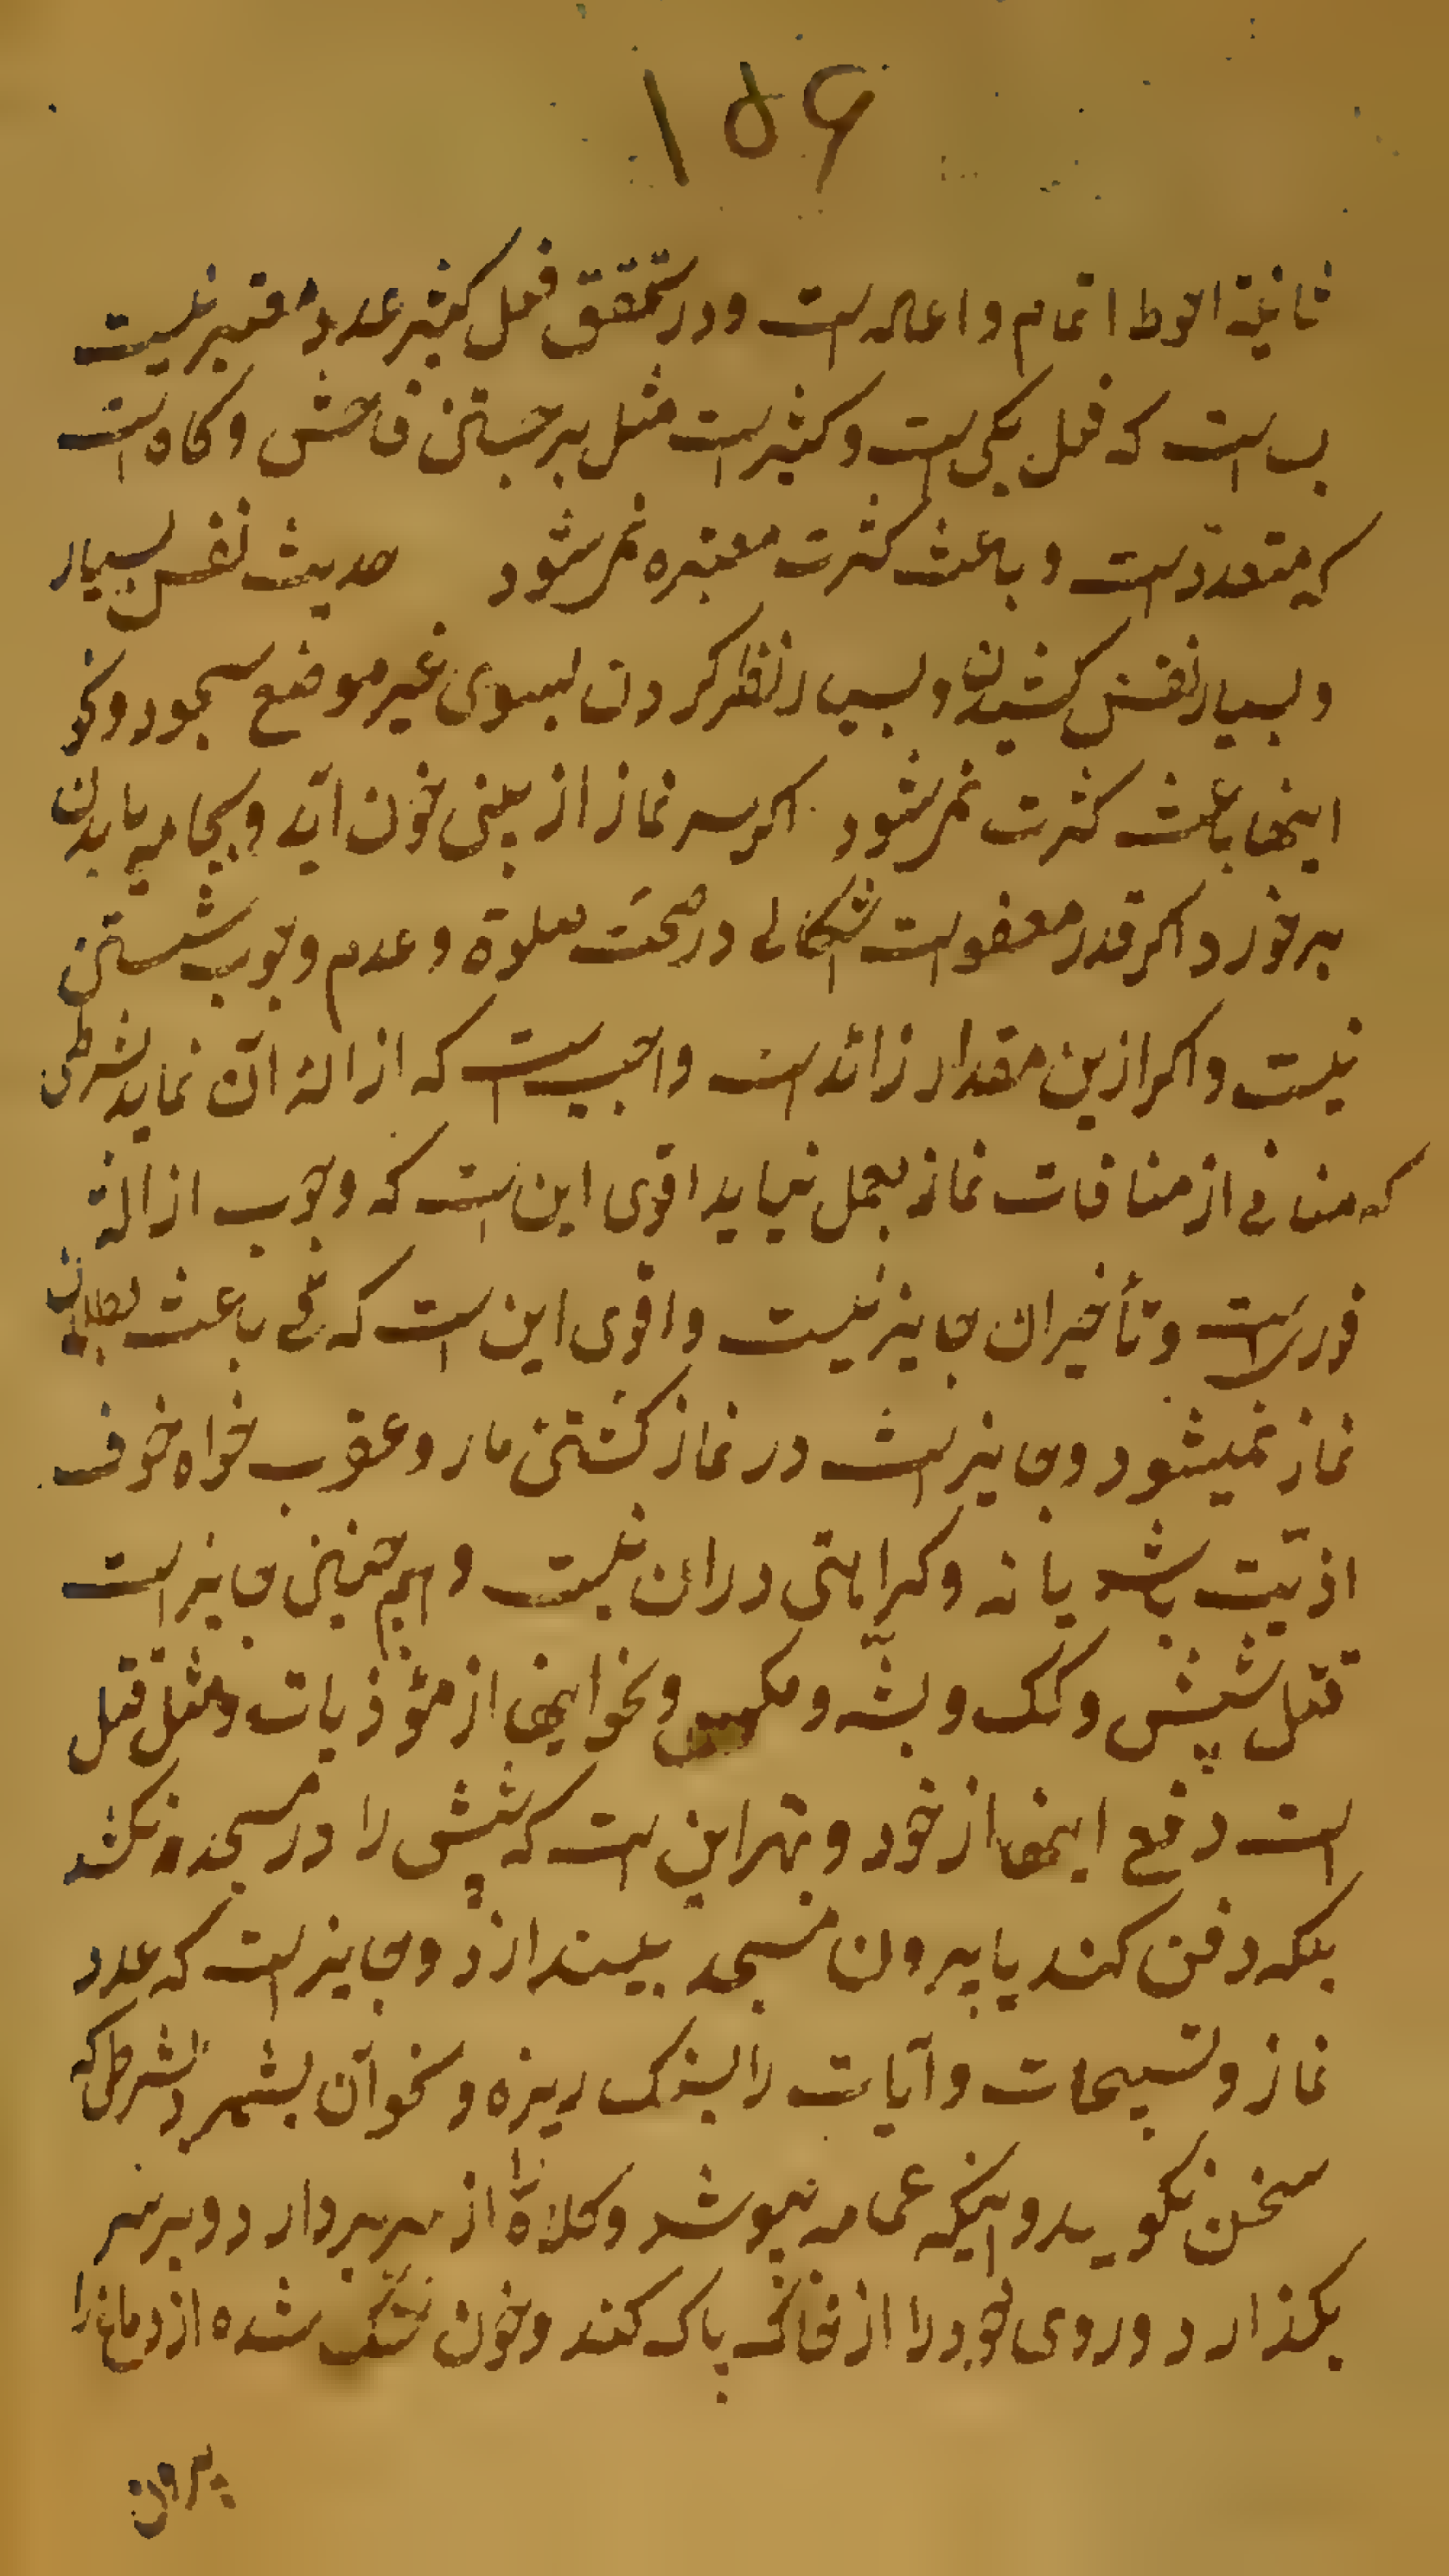 ۱۵۶
ثانیة احوط اتمام و اعاده است و در تحقق فعل کثیر عدد معتبر نیست
بسا است که فعل یکی است و کثیر است مثل برجستن فاحش و کاه است
که متعدد است و باعث کثرت معتبره نمیشود حدیث نفس بسیار
و بسیار نفس کشیدن و بسیار نظر کردن بسوی غیر موضع سجود و نحو
اینها باعث کثرت نمیشود اکر سر نماز از بینی خون آید و بجامه یا بدن
برخورد اکر قدر معفو است اشکالی در صحت صلوة و عدم وجوب شستن
نیست و اکر ازین مقدار زائد است واجبست که ازالهٔ آن نماید بشرطی
که منافی از منافات نماز بعمل نیاید اقوی این است که وجوب ازاله
فوریست و تأخیر ان جایز نیست و اقوی این است که قی باعث بطلان
نماز نمیشود و جایز است در نماز کشتن مار و عقرب خواه خوف
اذیّت باشد یا نه و کراهتی در ان نیست و همچنین جایز است
قتل شپش و کک و پشه و مکس و نحو اینها از مؤذیات و مثل قتل
است دفع اینها از خود و بهتر این است که شپش را در مسجد نکشد
بلکه دفن کند یا بیرون مسجد بیندازد و جایز است که عدد
نماز و تسبیحات و آیات را بسنک ریزه و نحو آن بشمرد بشرطی که
سخن نکوید و اینکه عمامه بپوشد و کلاه را از سر بردارد و بر سر
بکذارد و روی خود را از خاک پاک کند و خون خشک شده از دماغ را
بیرون